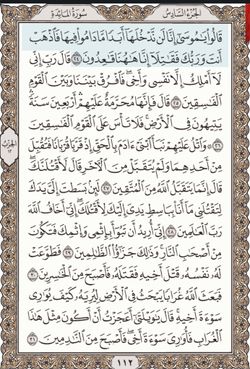 الجزء السادس
سورة المائدة
قَالُوا۟ يَٰمُوسَىٰٓ إِنَّا لَن نَّدْخُلَهَآ أَبَدًا مَّا دَامُوا۟ فِيهَا فَٱذْهَبْ
أَنتَ وَرَبُّكَ فَقَٰتِلَآ إِنَّا هَٰهُنَا قَٰعِدُونَ ٢٤ قَالَ رَبِّ إِنِّى
لَآ أَمْلِكُ إِلَّا نَفْسِى وَأَخِى فَٱفْرُقْ بَيْنَنَا وَبَيْنَ ٱلْقَوْمِ
ٱلْفَٰسِقِينَ ٢٥ قَالَ فَإِنَّهَا مُحَرَّمَةٌ عَلَيْهِمْ أَرْبَعِينَ سَنَةً
يَتِيهُونَ فِى ٱلْأَرْضِ فَلَا تَأْسَ عَلَى ٱلْقَوْمِ ٱلْفَٰسِقِينَ
٢٦ وَٱتْلُ عَلَيْهِمْ نَبَأَ ٱبْنَىْ ءَادَمَ بِٱلْحَقِّ إِذْ قَرَّبَا قُرْبَانًا فَتُقُبِّلَ
مِنْ أَحَدِهِمَا وَلَمْ يُتَقَبَّلْ مِنَ ٱلْءَاخَرِ قَالَ لَأَقْتُلَنَّكَ
قَالَ إِنَّمَا يَتَقَبَّلُ ٱللَّهُ مِنَ ٱلْمُتَّقِينَ ٢٧ لَئِنۢ بَسَطتَ إِلَىَّ يَدَكَ
لِتَقْتُلَنِى مَآ أَنَا۠ بِبَاسِطٍ يَدِىَ إِلَيْكَ لِأَقْتُلَكَ إِنِّىٓ أَخَافُ ٱللَّهَ
رَبَّ ٱلْعَٰلَمِينَ ٢٨ إِنِّىٓ أُرِيدُ أَن تَبُوٓأَ بِإِثْمِى وَإِثْمِكَ فَتَكُونَ
مِنْ أَصْحَٰبِ ٱلنَّارِ وَذَٰلِكَ جَزَٰٓؤُا۟ ٱلظَّٰلِمِينَ ٢٩ فَطَوَّعَتْ
لَهُۥ نَفْسُهُۥ قَتْلَ أَخِيهِ فَقَتَلَهُۥ فَأَصْبَحَ مِنَ ٱلْخَٰسِرِينَ ٣٠
فَبَعَثَ ٱللَّهُ غُرَابًا يَبْحَثُ فِى ٱلْأَرْضِ لِيُرِيَهُۥ كَيْفَ يُوَٰرِى
سَوْءَةَ أَخِيهِ قَالَ يَٰوَيْلَتَىٰٓ أَعَجَزْتُ أَنْ أَكُونَ مِثْلَ هَٰذَا
ٱلْغُرَابِ فَأُوَٰرِىَ سَوْءَةَ أَخِى فَأَصْبَحَ مِنَ ٱلنَّٰدِمِينَ ٣١
١١٢